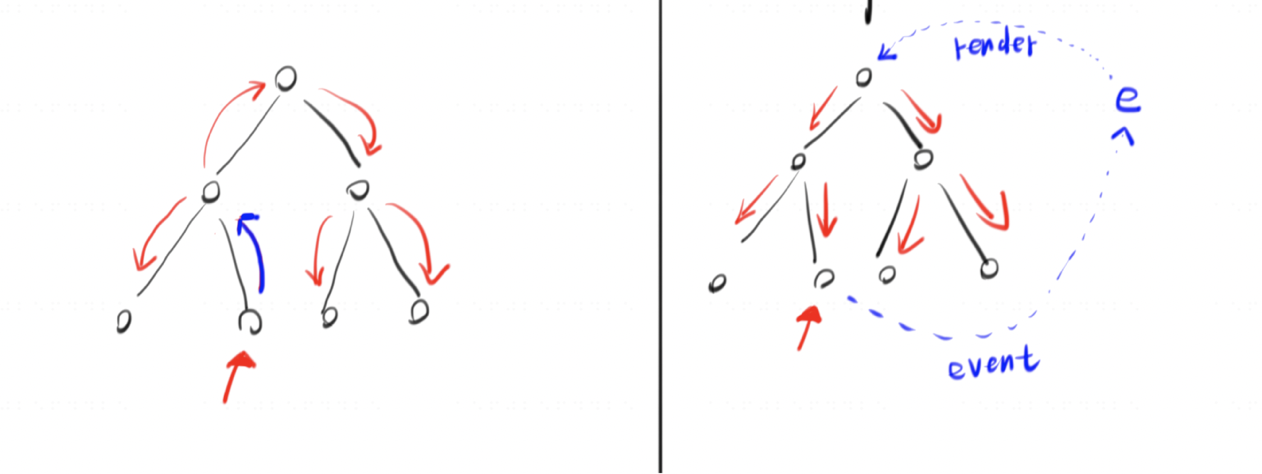 render
e
event